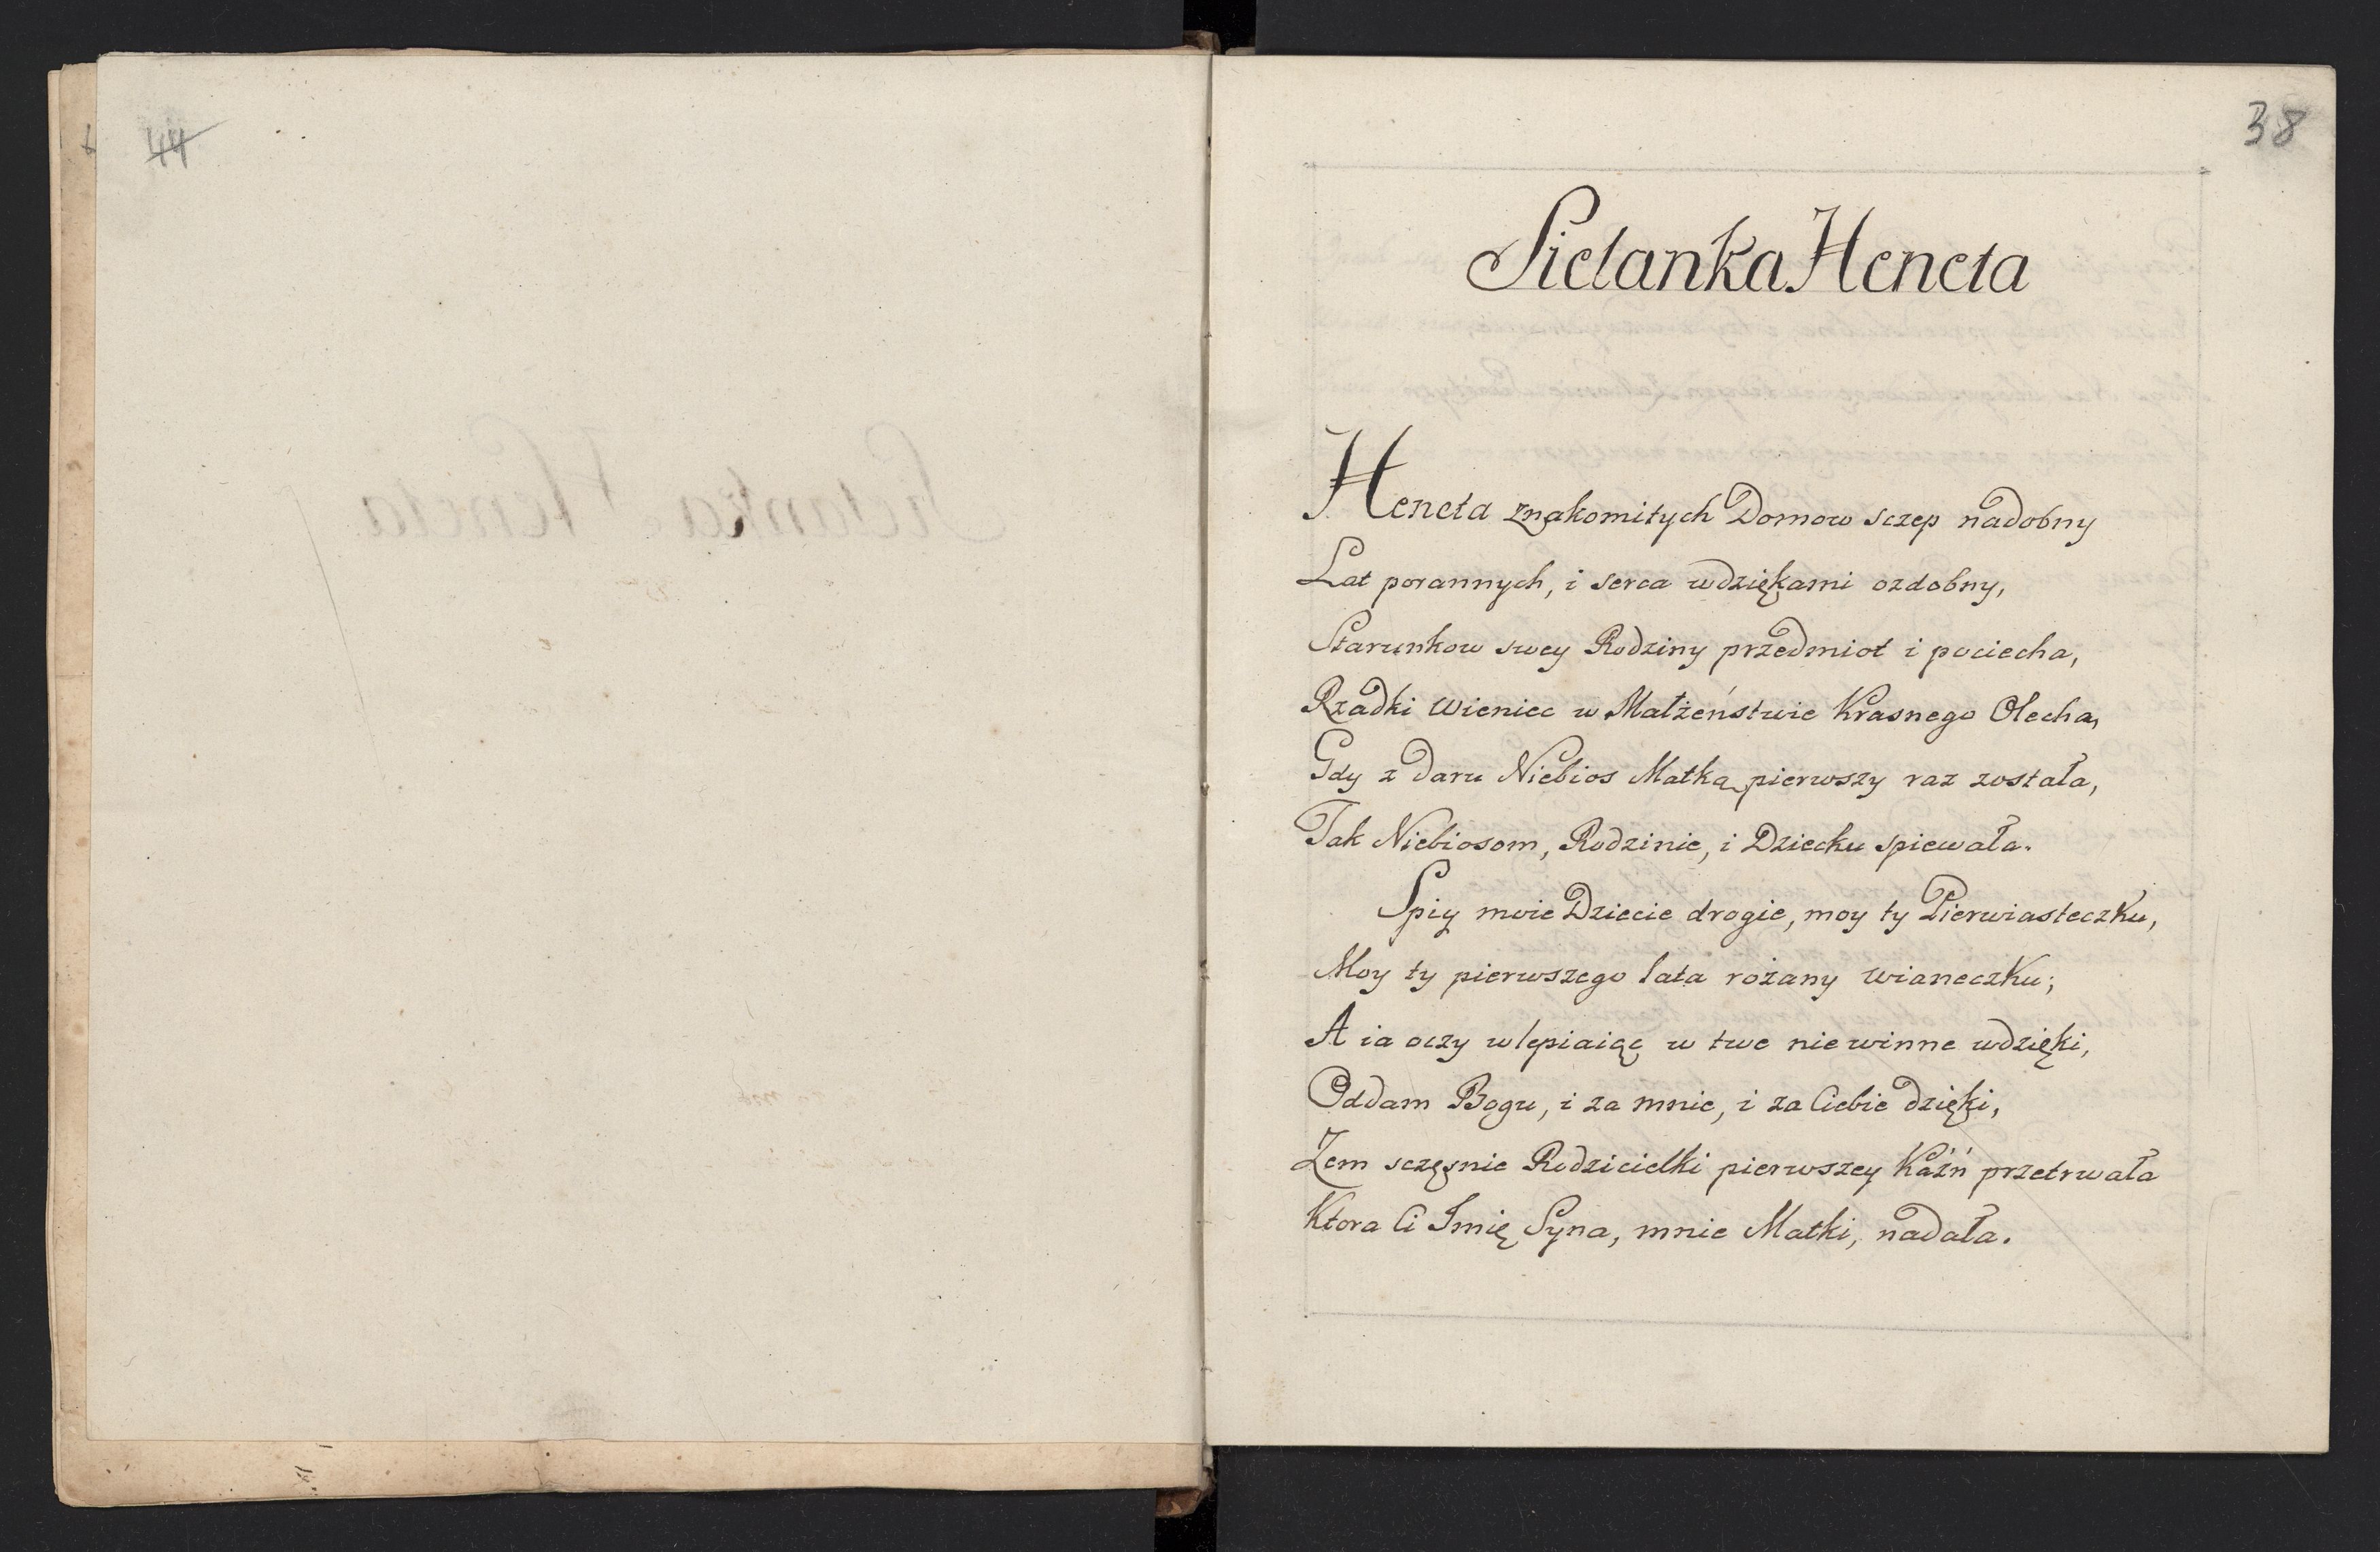 44
38
Sielanka Heneta
Heneta znakomitych Domow sczep nadobny
Lat porannych, i serca wdziękami ozdobny,
Starunkow swey Rodziny przedmiot i pociecha,
Rzadki Wieniec w Małżeństwie Krasnego Olecha,
Gdy z Daru Niebios Matką pierwszy raz została,
Tak Niebiosom, Rodzinie, i Dziecku spiewała.
Spiy moie Dziecie drogie, moy ty Pierwiasteczku,
Moy ty pierwszego lata rożany Wianeczku;
A ia oczy wlepiaiąc w twe niewinne wdzięki,
Oddam Bogu, i za mnie, i za Ciebie dzięki,
Zem sczęsnie Rodzicielki pierwszey Kaźń przetrwała
Ktora Ci Imię Syna, mnie Matki, nadała.